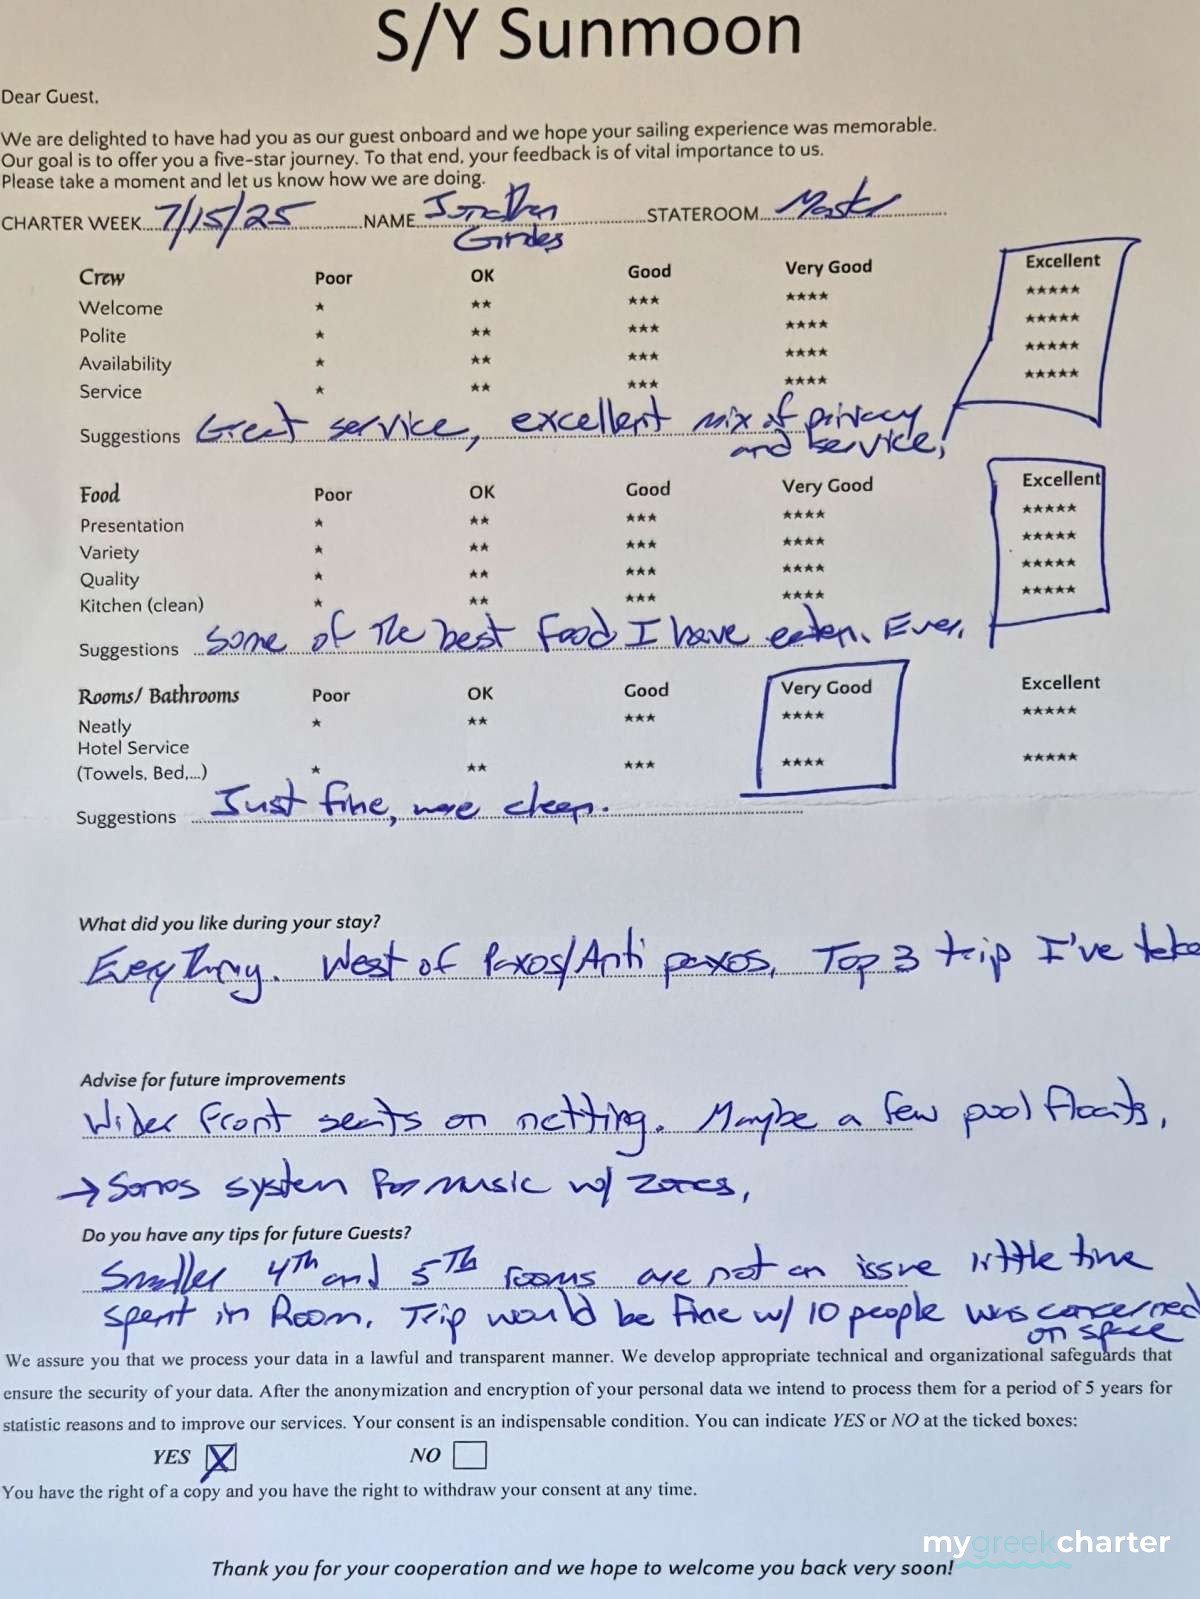 S/Y Sunmoon
Dear Guest,
We are delighted to have had you as our guest onboard and we hope your sailing experience was memorable.
Our goal is to offer you a five-star journey. To that end, your feedback is of vital importance to us.
Please take a moment and let us know how we are doing.
CHARTER WEEK 7/15/25 NAME Jonathan STATEROOM Master
Crew Poor OK Good Very Good Excellent
Welcome ★ ★★ ★★★ ★★★★ ★★★★★
Polite ★ ★★ ★★★ ★★★★ ★★★★★
Availability ★ ★★ ★★★ ★★★★ ★★★★★
Service ★ ★★ ★★★ ★★★★ ★★★★★
Suggestions Great service, excellent mix of privacy
and service!
Food Poor OK Good Very Good Excellent
Presentation ★ ★★ ★★★ ★★★★ ★★★★★
Variety ★ ★★ ★★★ ★★★★ ★★★★★
Quality ★ ★★ ★★★ ★★★★ ★★★★★
Kitchen (clean) ★ ★★ ★★★ ★★★★ ★★★★★
Suggestions Some of the best food I have eaten. Ever.
Rooms/ Bathrooms Poor OK Good Very Good Excellent
Neatly ★ ★★ ★★★ ★★★★ ★★★★★
Hotel Service
(Towels, Bed,...) ★ ★★ ★★★ ★★★★ ★★★★★
Suggestions Just fine, were clean.
What did you like during your stay?
Everything. West of Paxos/Anti paxos, Top 3 trip I've take
Advise for future improvements
Wider front seats on netting. Maybe a few pool floats,
→ Sonos system for music w/ zones,
Do you have any tips for future Guests?
Smaller 4th and 5th rooms are not an issue little time
spent in Room. Trip would be fine w/ 10 people was concerned
on space
We assure you that we process your data in a lawful and transparent manner. We develop appropriate technical and organizational safeguards that
ensure the security of your data. After the anonymization and encryption of your personal data we intend to process them for a period of 5 years for
statistic reasons and to improve our services. Your consent is an indispensable condition. You can indicate YES or NO at the ticked boxes:
YES X NO
You have the right of a copy and you have the right to withdraw your consent at any time.
mygreekcharter
Thank you for your cooperation and we hope to welcome you back very soon!